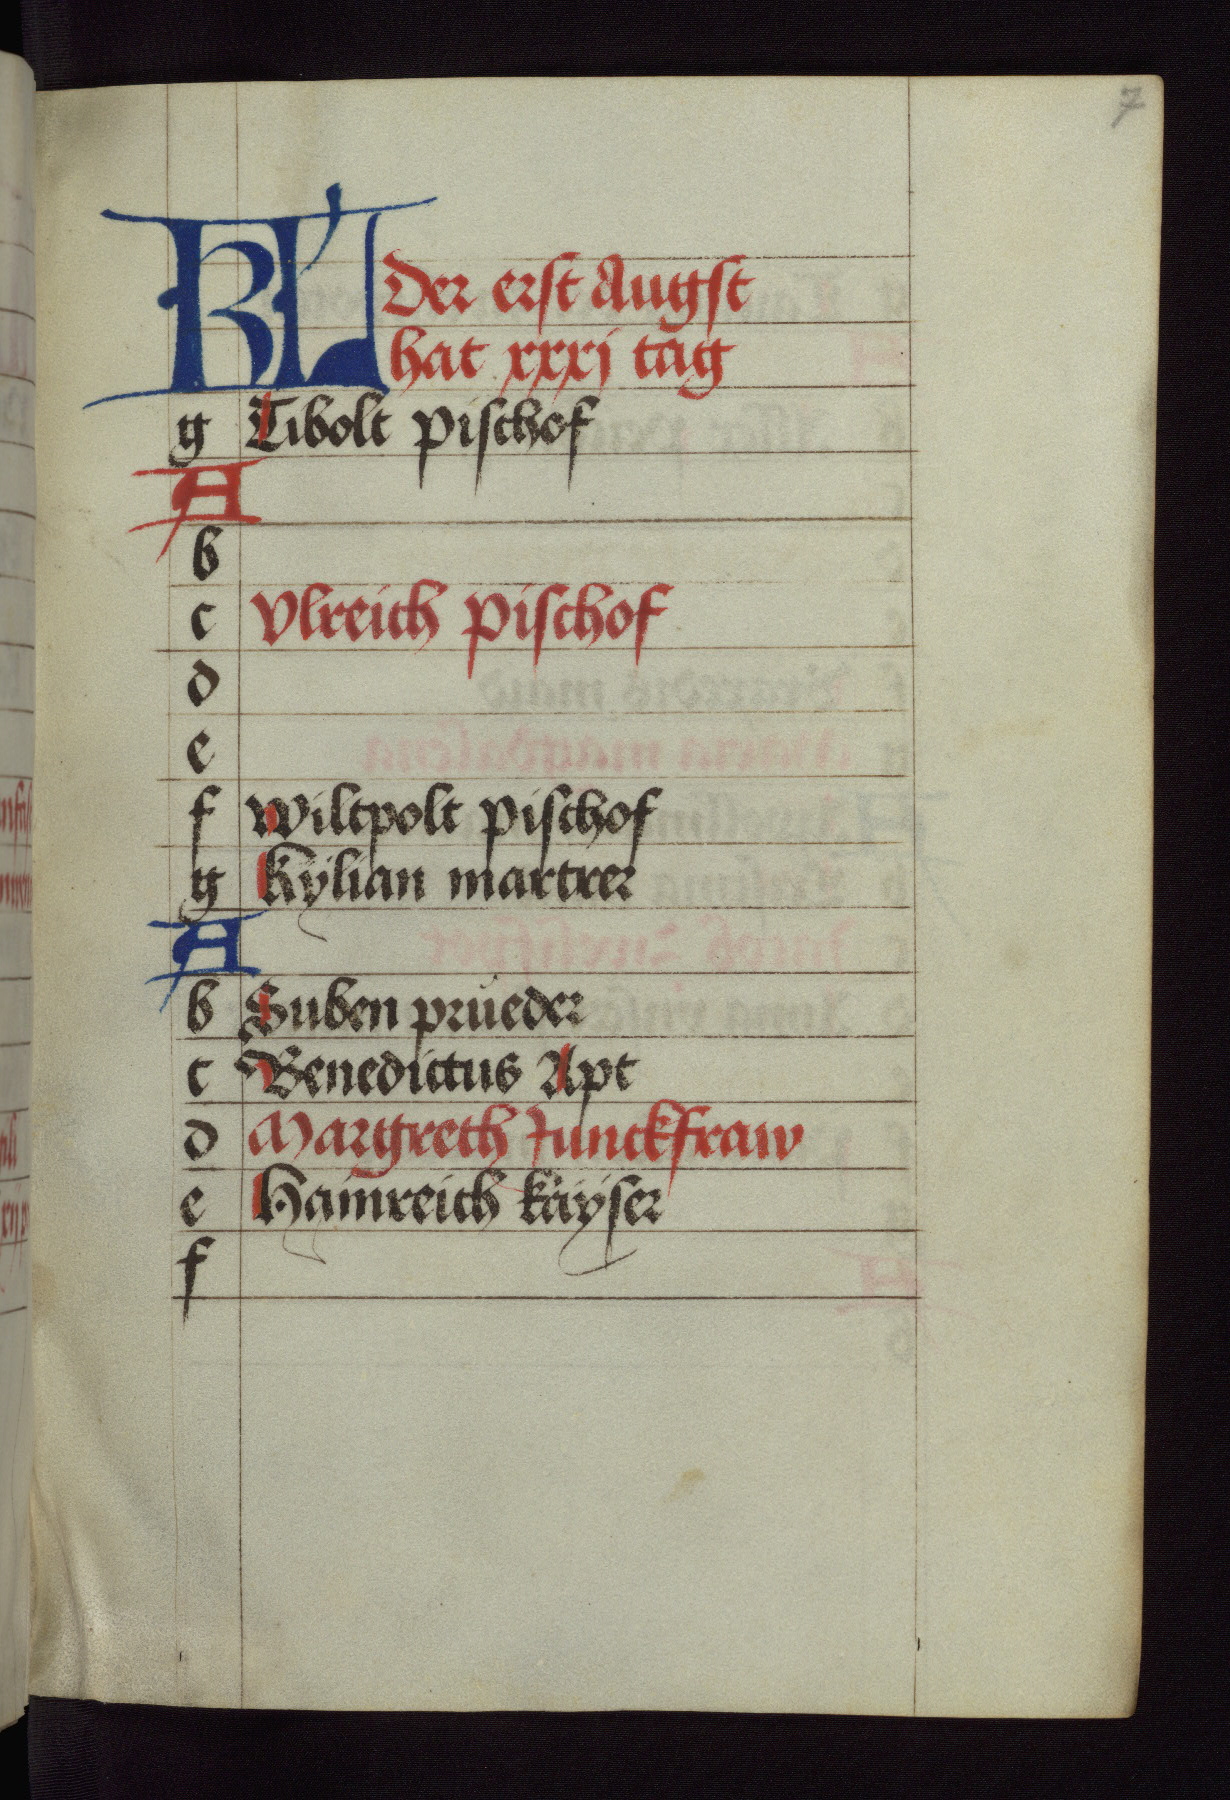 7
KL der erst Augst
hat xxxj tag
g Tibolt pischof
A
b
c Vlreich pischof
d
e
f Wiltpolt pischof
g Kÿlian martrer
A
b Suben prüeder
c Benedictus Apt
d Margreth Junckfraw
e Hainreich kaÿser
f